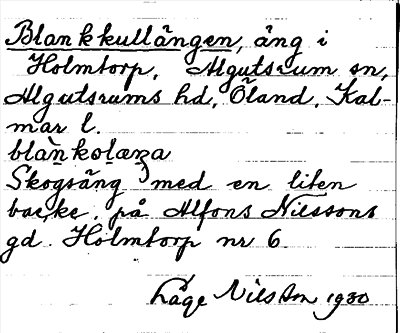 Blankkullängen, äng i
Holmtorp, Algutsrum sn,
Algutsrums hd, Öland, Kal-
mar l.
Skogsäng med en liten
backe, på Alfons Nilssons
gd. Holmtorp nr 6.
Låge Nilsson 1930